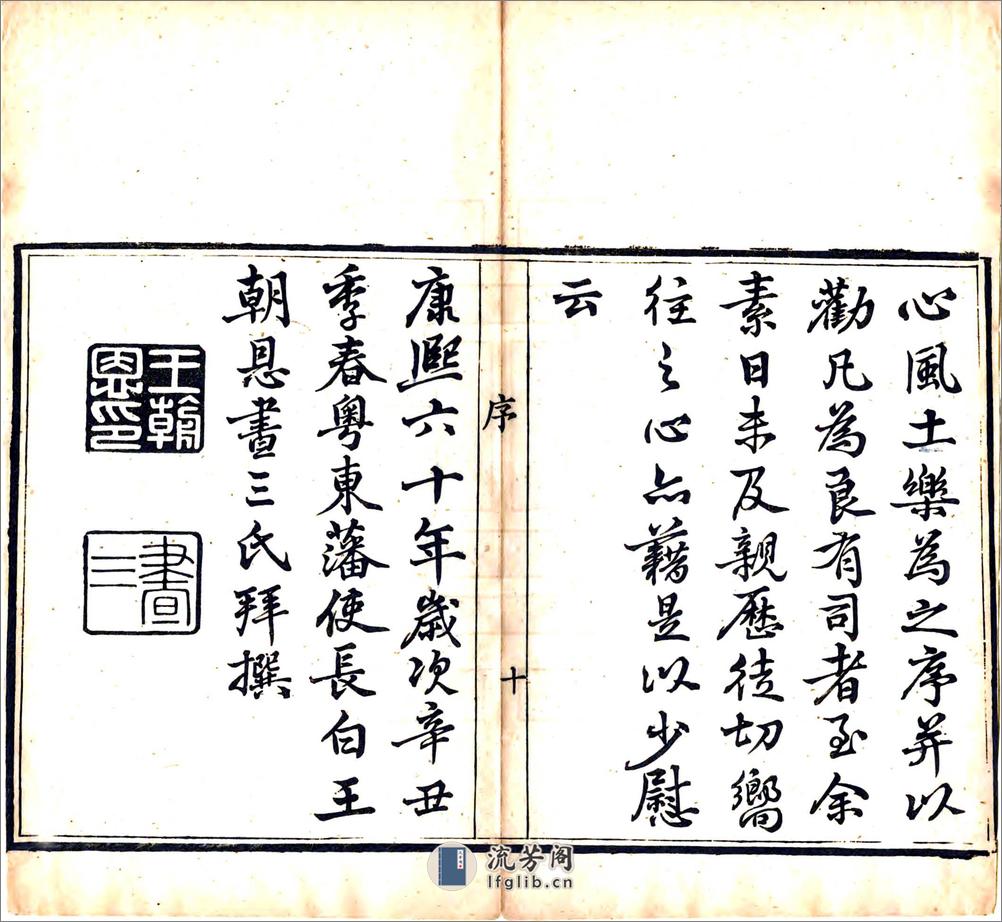 心風土樂為之序并以
勸凡為良有司者至余
素日未及親歷徒切嚮
往之心亦藉是以少慰
云
序
十
康熙六十年歲次辛丑
季春粵東藩使長白王
朝恩書三氏拜撰
王朝恩印
書三
流芳阁
lfglib.cn